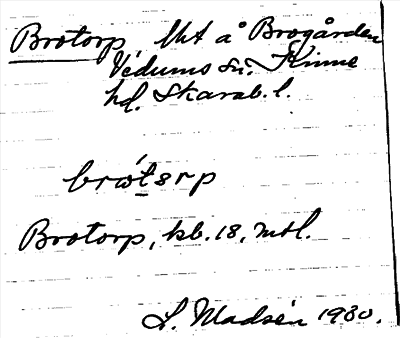 Brotorp, lht å Brogården
Vedums sn. Kinne
hd. Skarab. l.
brώtsrp
Brotorp, kb. 18, mtl.
L. Madsén 1930.